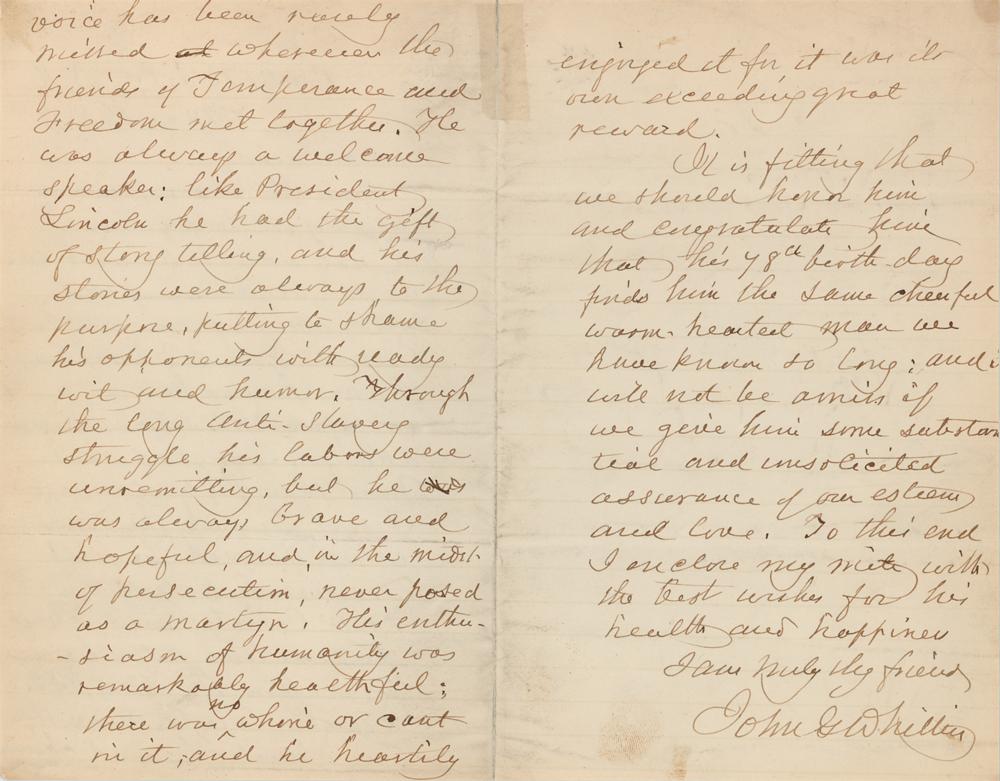 voice has been rarely
missed at wherever the
friends of Temperance and
Freedom met together. He
was always a welcome
speaker: like President
Lincoln he had the gift
of story telling, and his
stories were always to the
purpose, putting to shame
his opponents with ready
wit and humor. Through
the long Anti-Slavery
struggle his labors were
unremitting, but he was
was always brave and
hopeful, and, in the midst
of persecution, never posed
as a martyr. His enthu-
-siasm of humanity was
remarkably healthful:
there was no whine or cant
in it, and he heartily
enjoyed it for it was its
own exceeding great
reward.
It is fitting that
we should honor him
and congratulate him
that his 78th birth-day
finds him the same cheerful
warm-hearted man we
have known so long: and i
will not be amiss if
we give him some substan
tial and unsolicited
assurance of our esteem
and love. To this end
I enclose my mite with
the best wishes for his
health and happiness
I am truly thy friend
John G Whittier